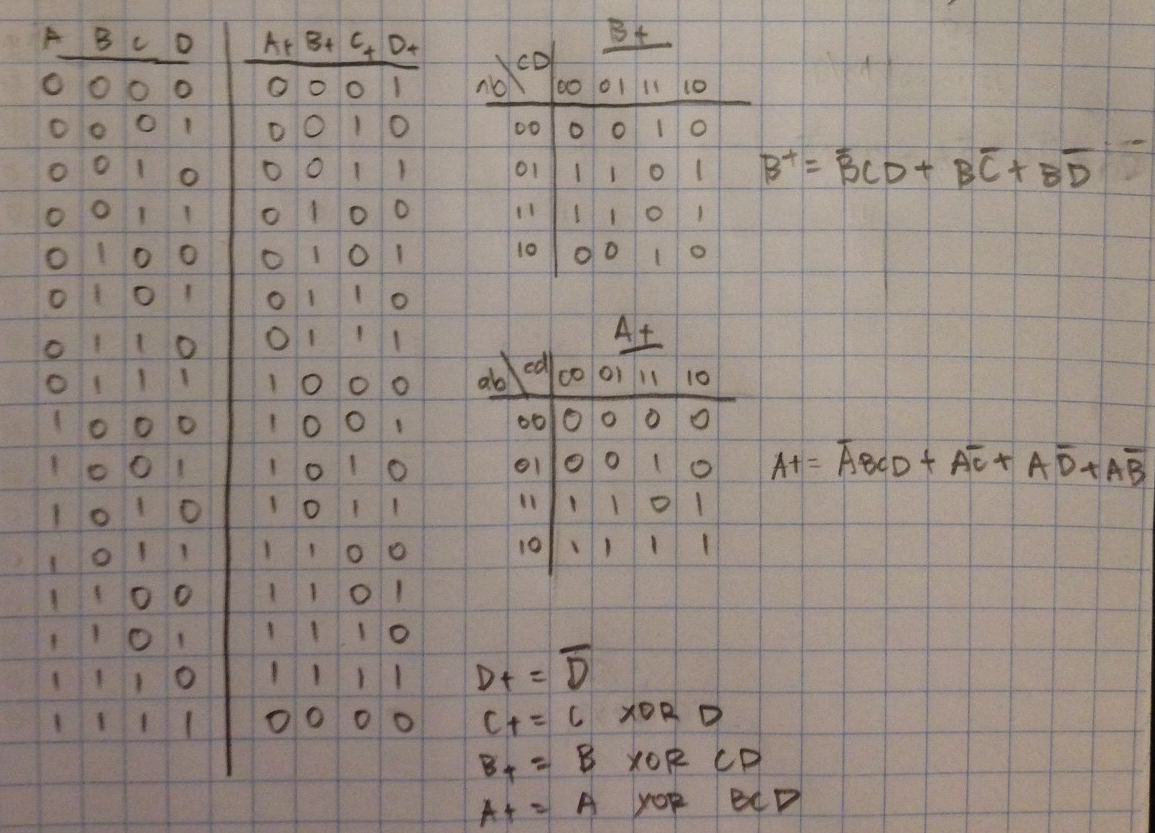 A B C D A+ B+ C+ D+
0 0 0 0 0 0 0 1
0 0 0 1 0 0 1 0
0 0 1 0 0 0 1 1
0 0 1 1 0 1 0 0
0 1 0 0 0 1 0 1
0 1 0 1 0 1 1 0
0 1 1 0 0 1 1 1
0 1 1 1 1 0 0 0
1 0 0 0 1 0 0 1
1 0 0 1 1 0 1 0
1 0 1 0 1 0 1 1
1 0 1 1 1 1 0 0
1 1 0 0 1 1 0 1
1 1 0 1 1 1 1 0
1 1 1 0 1 1 1 1
1 1 1 1 0 0 0 0
B+
ab\CD 00 01 11 10
00 0 0 1 0
01 1 1 0 1
11 1 1 0 1
10 0 0 1 0
B+ = B̅CD + BC̅ + BD̅
A+
ab\cd 00 01 11 10
00 0 0 0 0
01 0 0 1 0
11 1 1 0 1
10 1 1 1 1
A+ = A̅BCD + AC̅ + AD̅ + AB̅
D+ = D̅
C+ = C XOR D
B+ = B XOR CD
A+ = A XOR BCD